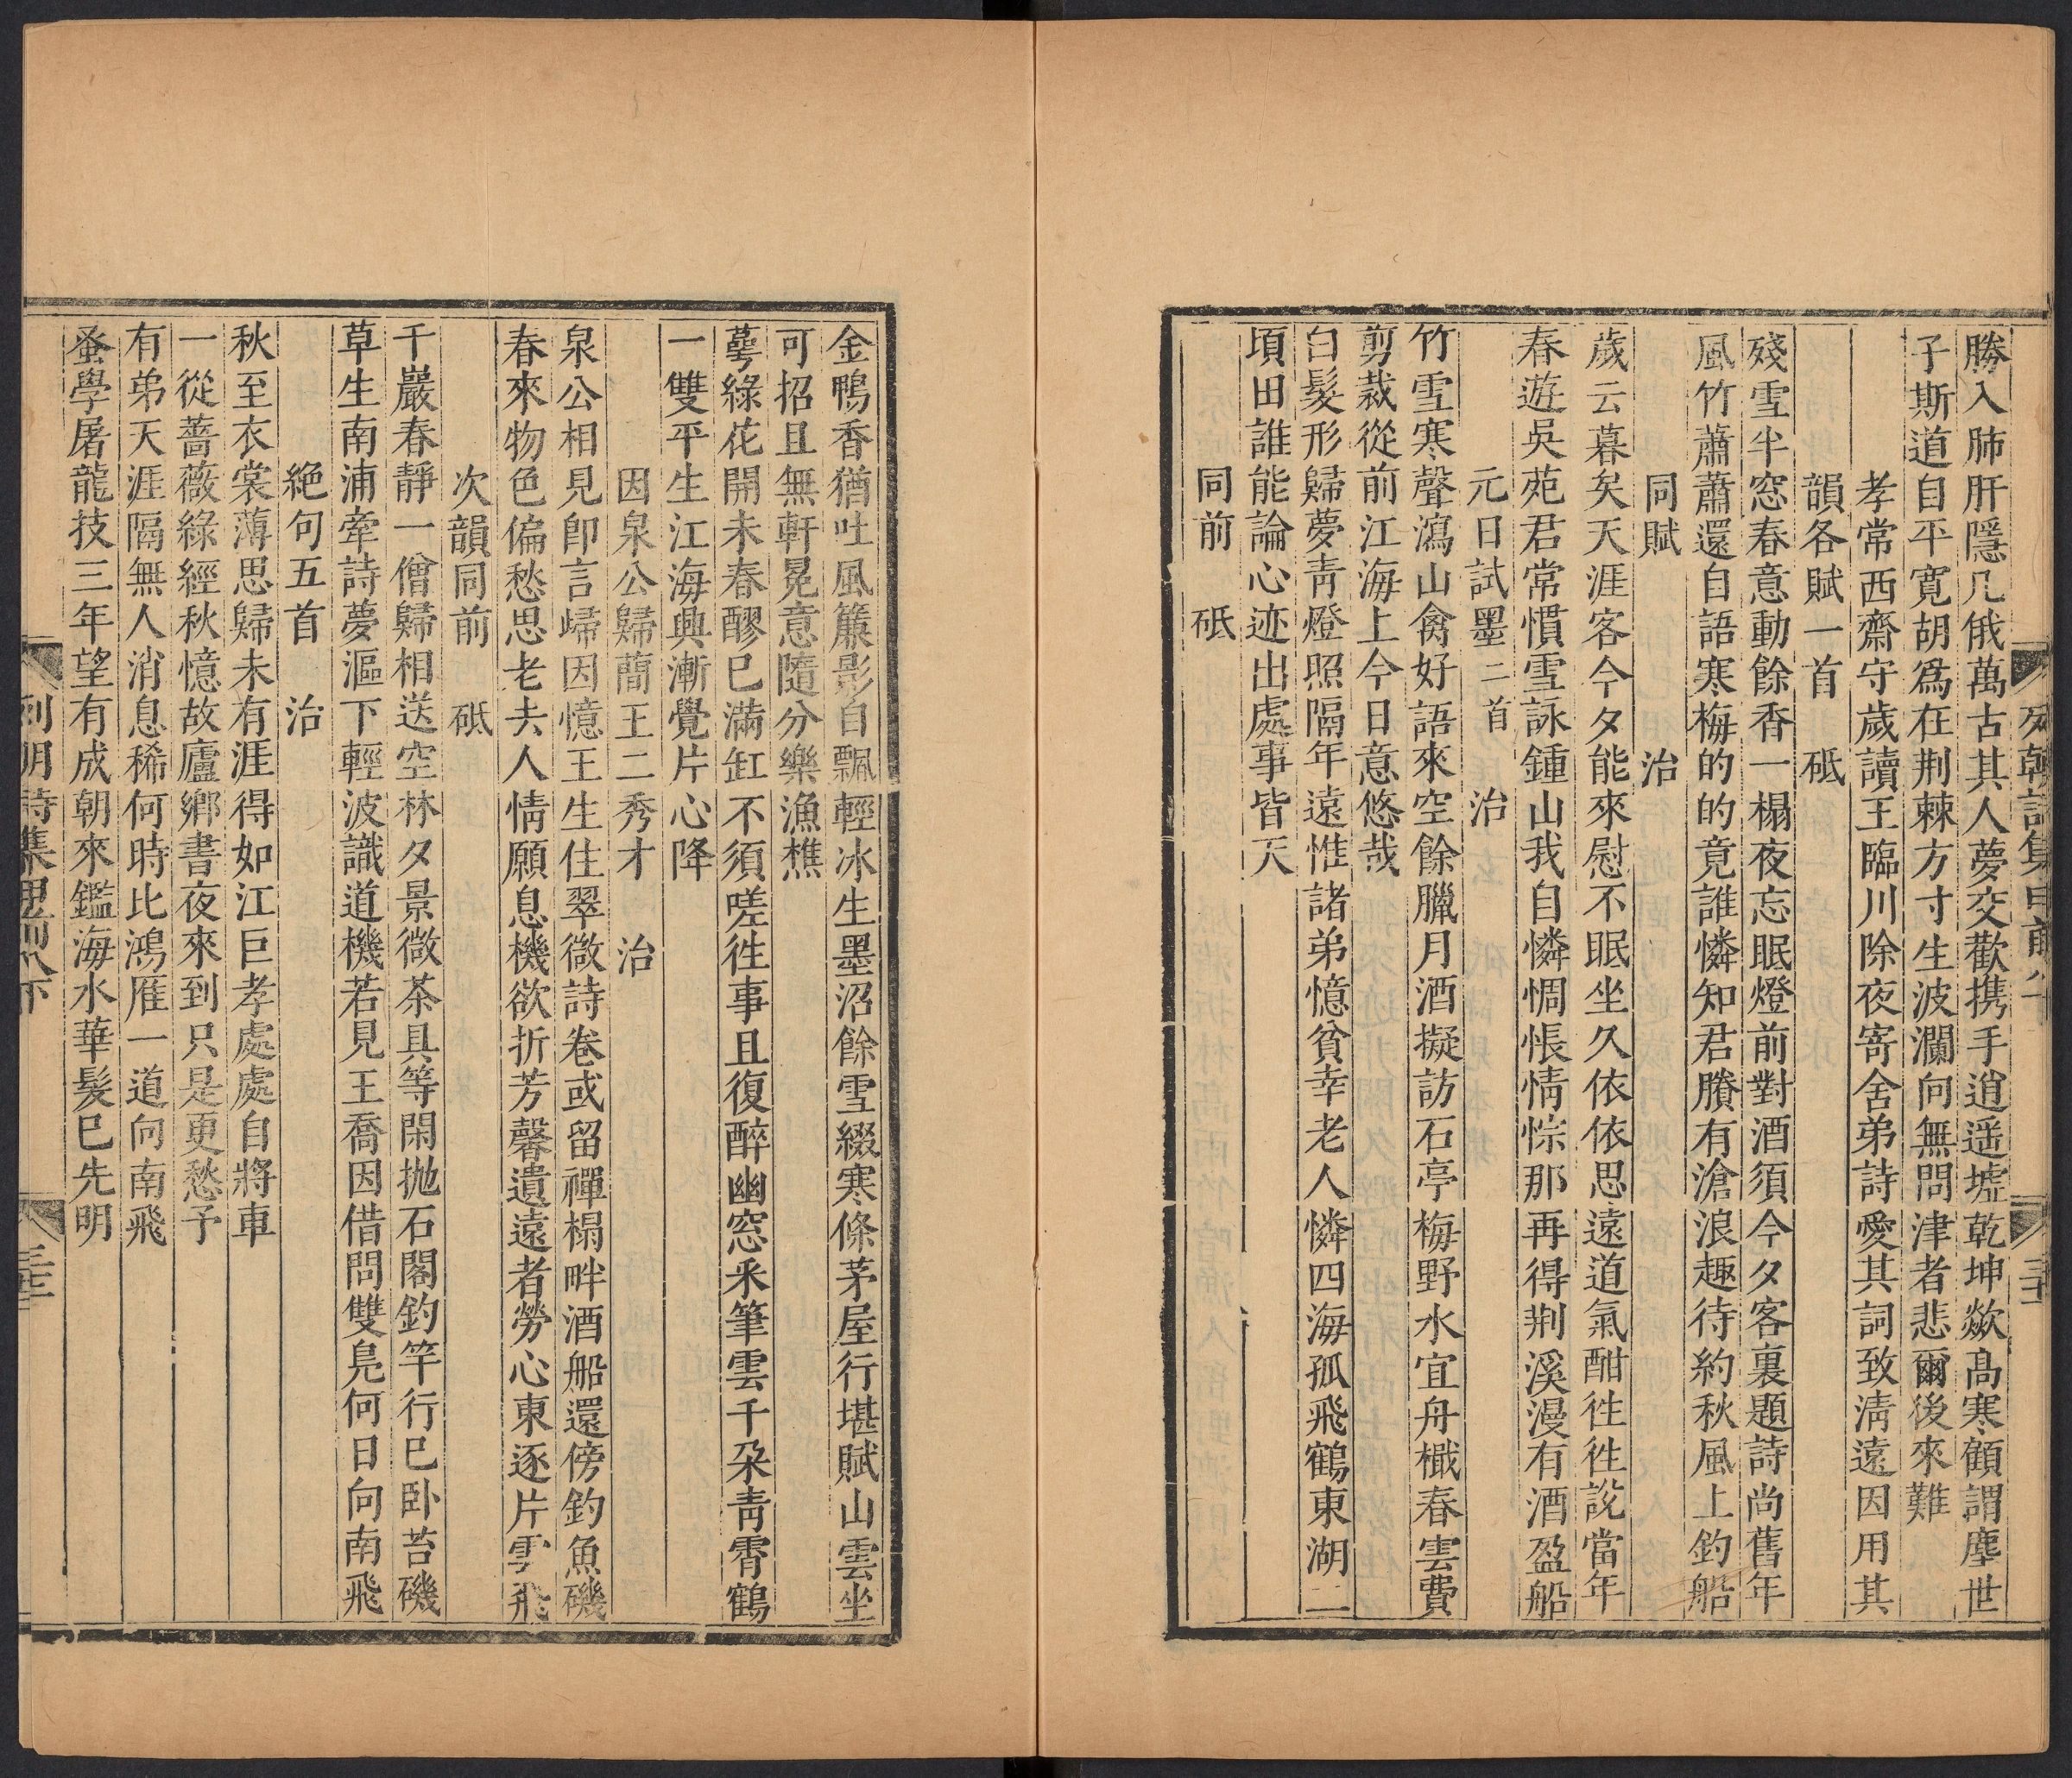 勝入肺肝隱几俄萬古其人夢交歡携手逍遥墟乾坤歘高寒顧謂塵世
子斯道自平寛胡爲在荆棘方寸生波瀾向無問津者悲爾後來難
孝常西齋守歲讀王臨川除夜寄舍弟詩愛其詞致淸遠因用其
韻各賦一首　砥
殘雪半窓春意動餘香一榻夜忘眠燈前對酒須今夕客裏題詩尚舊年
風竹蕭蕭還自語寒梅的的竟誰憐知君賸有滄浪趣待約秋風上釣船
同賦　治
歲云暮矣天涯客今夕能來慰不眠坐久依依思遠道氣酣徃徃說當年
春遊吳苑君常慣雪詠鍾山我自憐惆悵情悰那再得荆溪漫有酒盈船
元日試墨二首　治
竹雪寒聲瀉山禽好語來空餘臘月酒擬訪石亭梅野水宜舟檝春雲費
剪裁從前江海上今日意悠哉
白髮形歸夢靑燈照隔年遠惟諸弟憶貧幸老人憐四海孤飛鶴東湖二
頃田誰能論心迹出處事皆天
同前　砥
金鴨香猶吐風簾影自飄輕冰生墨沼餘雪綴寒條茅屋行堪賦山雲坐
可招且無軒冕意隨分樂漁樵
蕚綠花開未春醪已滿缸不須嗟徃事且復醉幽窓釆筆雲千朶靑霄鶴
一雙平生江海興漸覺片心降
因泉公歸蕳王二秀才　治
泉公相見卽言歸因憶王生住翠微詩卷或留禪榻畔酒船還傍釣魚磯
春來物色偏愁思老去人情願息機欲折芳馨遺遠者勞心東逐片雲飛
次韻同前　砥
千巖春靜一僧歸相送空林夕景微茶具等閑抛石閣釣竿行已卧苔磯
草生南浦牽詩夢漚下輕波識道機若見王喬因借問雙鳧何日向南飛
絶句五首　治
秋至衣裳薄思歸未有涯得如江巨孝處處自將車
一從薔薇綠經秋憶故廬鄉書夜來到只是更愁予
有弟天涯隔無人消息稀何時比鴻雁一道向南飛
蚤學屠龍技三年望有成朝來鑑海水華髮已先明